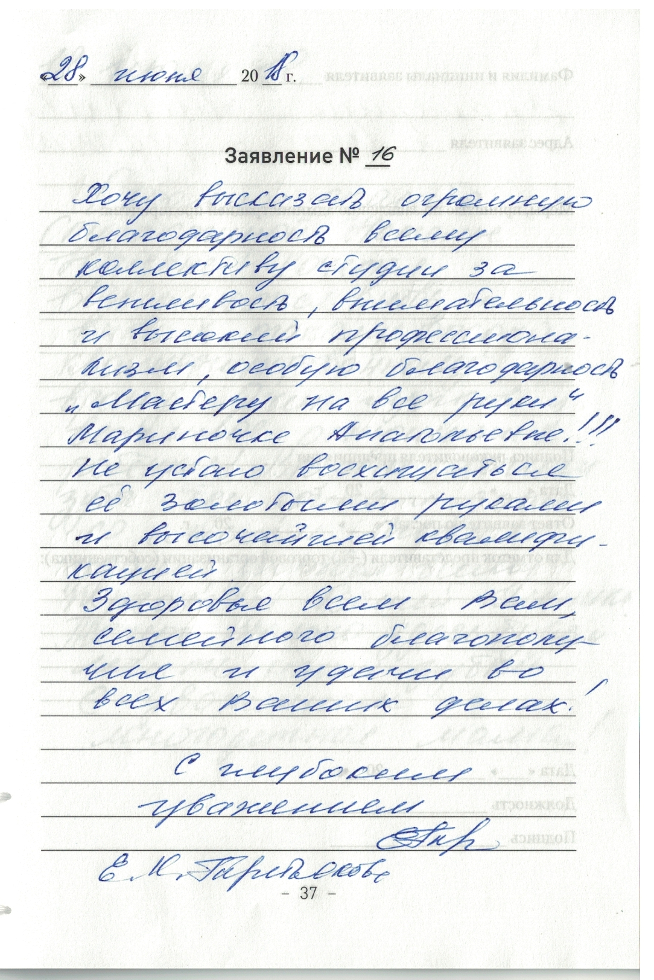 «28» июня 2018 г.
Заявление № 16
Хочу высказать огромную
благодарность всему
коллективу студии за
вежливость, внимательность
и высокий профессиона-
лизм, особую благодарность
„Мастеру на все руки“
Мариночке Анатольевне!!!
Не устаю восхищаться
её золотыми руками
и высочайшей квалифи-
кацией
Здоровья всем Вам,
семейного благополу-
чия и удачи во
всех Ваших делах!
С глубоким
уважением
Е.М.
- 37 -